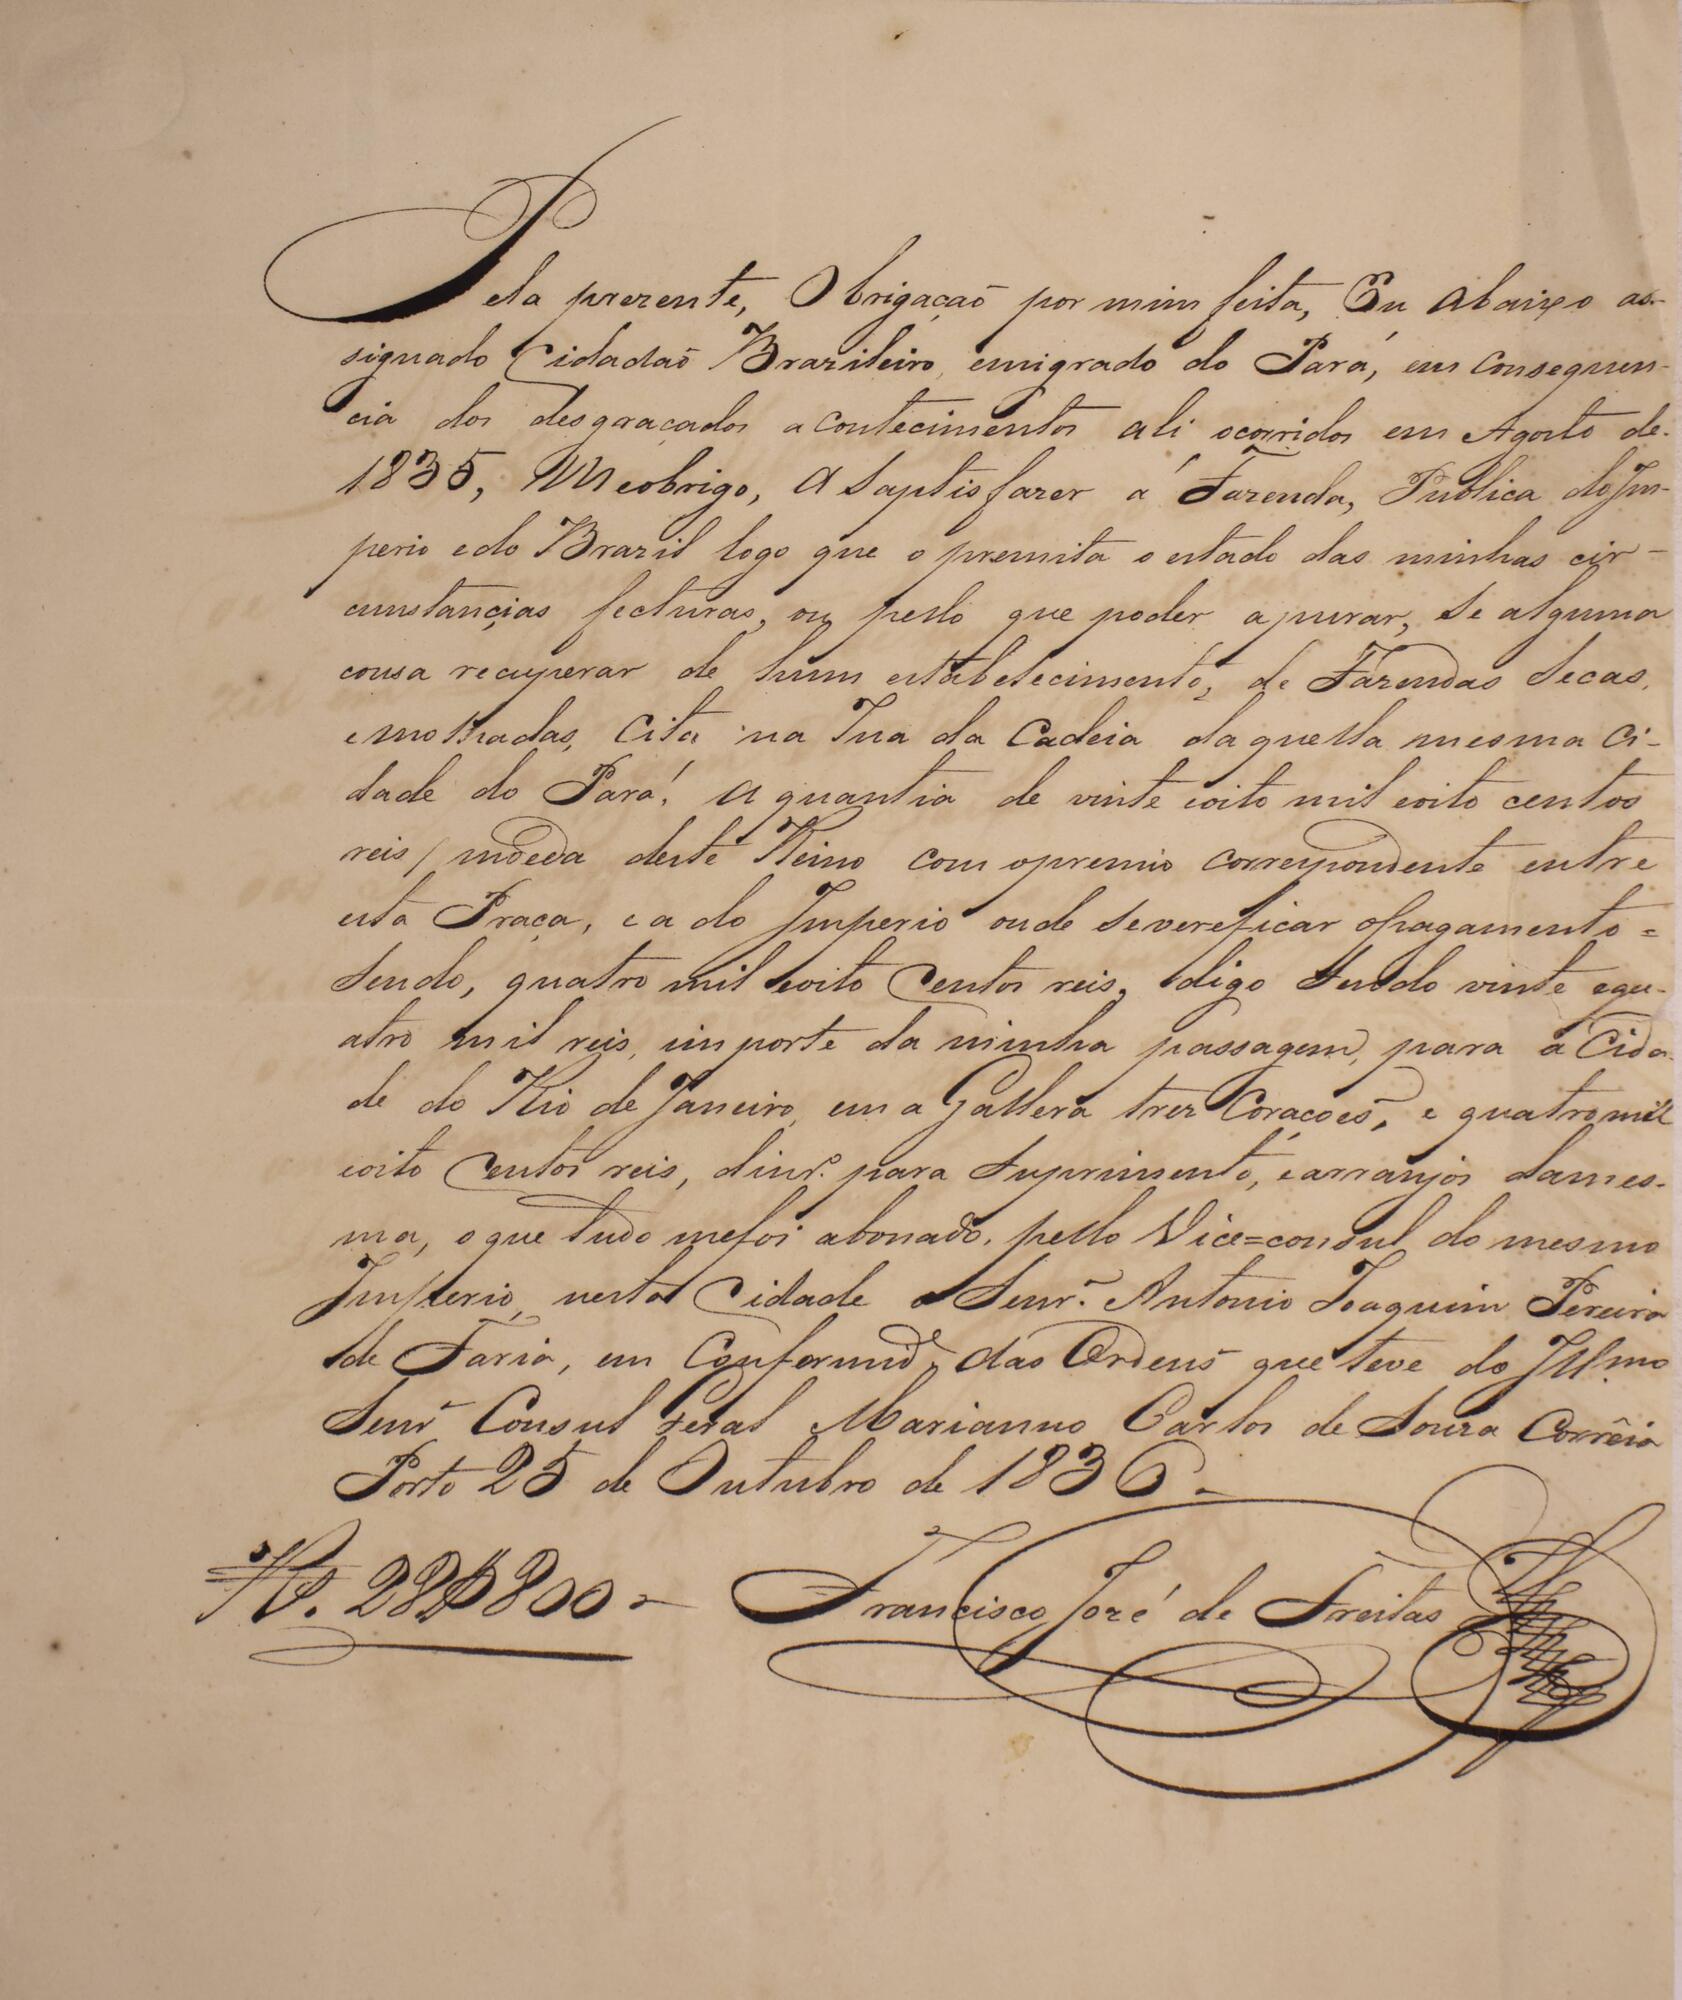 Pela prezente, Obrigaçaõ por mim feita, Eu abaixo as-
signado Cidadaõ Brazileiro, emigrado do Pará, em consequen-
cia dos desgraçados acontecimentos ali ocorridos em Agosto de
1835, Meobrigo, a saptisfazer á Fazenda, Publica do Im-
perio edo Brazil logo que o premita o estado das minhas cir-
cunstançias fecturas, ou pello que poder apurar, se alguma
cousa recuperar de hum estabelecimento, de Fazendas Secas,
e molhadas, Cita na Rua da Cadeia daquella mesma Ci-
dade do Pará! a quantia de vinte eoito mil eoito centos
reis / moeda deste Reino com opremio correspondente entre
esta Praça, e a do Imperio onde severeficar opagamento =
Sendo, quatro mil eoito Centos reis, digo Sendo vinte equ-
atro mil reis, importe da minha passagem, para a Cida-
de do Rio de Janeiro, em a Gallera trez Coracoēs, e quatro mil
eoito Centos reis, dinr.º para Suprimento, earranjos dames-
ma, o que tudo mefoi abonado, pello Vice=consul do mesmo
Imperio, nesta Cidade o Senr. Antonio Joaquim Pereira
de Faria, em Conformid.e das Ordens que teve do Illmo
Senr Consul Geral Marianno Carlos de Souza Corrêia
Porto 25 de Outubro de 1836 -
Rs. 28$800 =
Francisco Jozé de Freitas